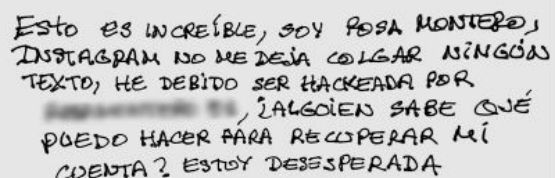 ESTO ES INCREÍBLE, SOY ROSA MONTERO,
INSTAGRAM NO ME DEJA COLGAR NINGÚN
TEXTO, HE DEBIDO SER HACKEADA POR
, ¿ALGUIEN SABE QUÉ
PUEDO HACER PARA RECUPERAR MI
CUENTA? ESTOY DESESPERADA